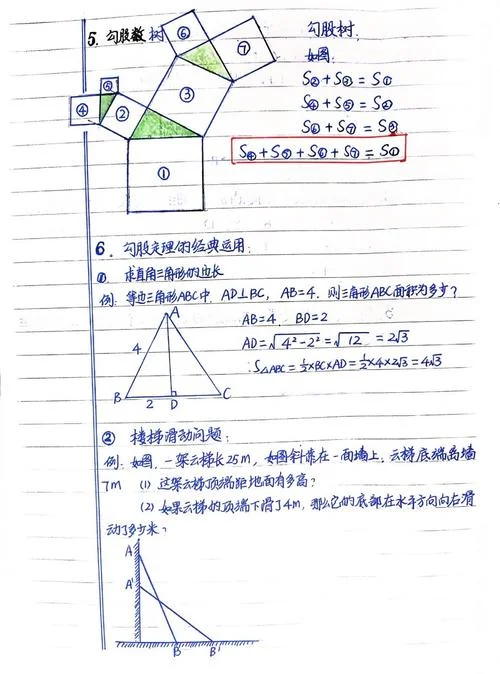 5. 勾股数树
⑥
⑦
③
⑤
④
②
①
勾股树:
如图:
S② + S③ = S①
S④ + S⑤ = S②
S⑥ + S⑦ = S③
S④ + S⑤ + S⑥ + S⑦ = S①
6. 勾股定理的经典运用:
① 求直角三角形的边长
例: 等边三角形ABC中, AD⊥BC, AB=4. 则三角形ABC面积为多少?
A
4
B
2
D
C
AB=4, BD=2
AD=√4²-2² = √12 = 2√3
∴S△ABC = ½×BC×AD = ½×4×2√3 = 4√3
② 楼梯滑动问题:
例: 如图, 一架云梯长25m, 如图斜靠在一面墙上, 云梯底端离墙
7m (1) 这架云梯顶端距地面有多高?
(2) 如果云梯的顶端下滑了4m, 那么它的底部在水平方向向右滑
动了多少米?
A
A'
B
B'